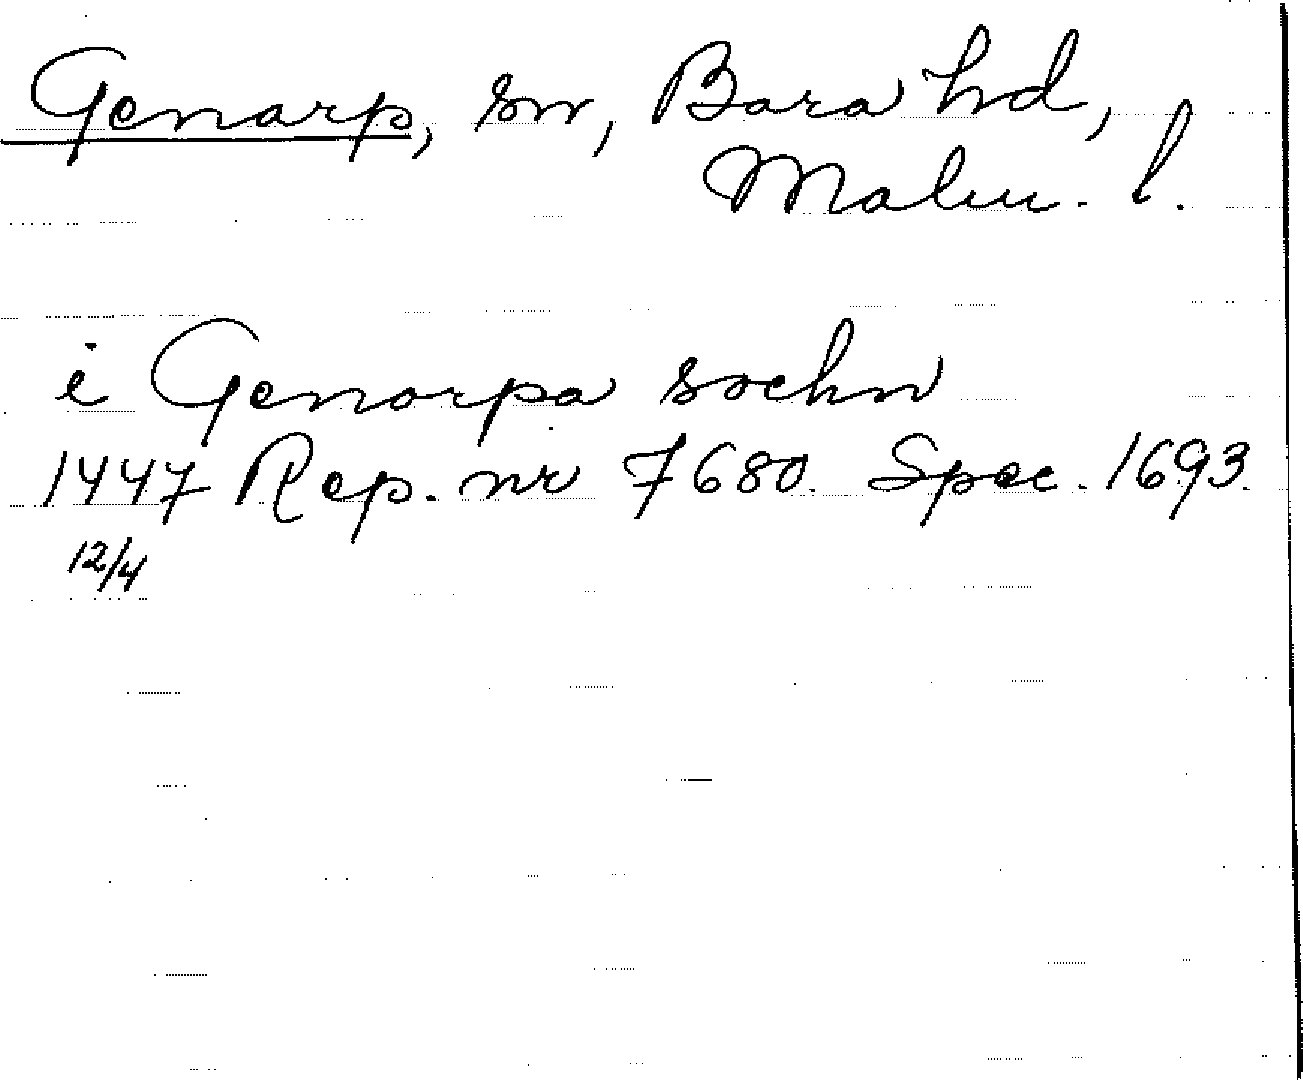 Genarp, sn, Bara hd,
Malm. l.
i Genorpa sochn
1447 Rep. nr 7680. Spec. 1693.
12/4